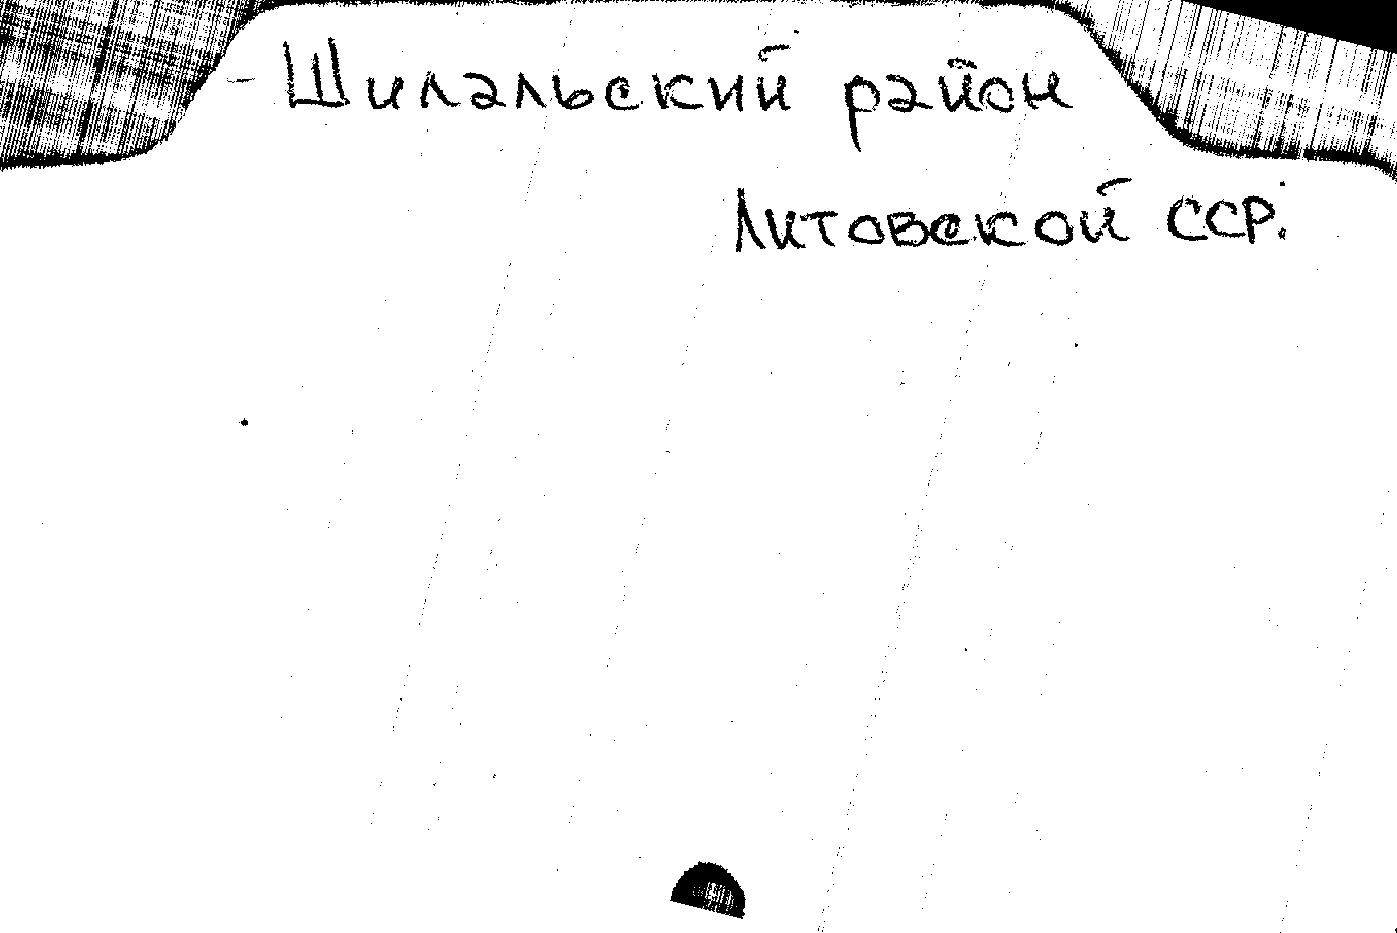 - Шилальский район
Литовской ССР.